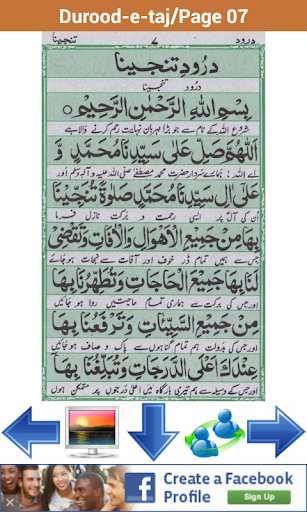 Durood-e-taj/Page 07
درود
۷
تنجینا
درود تنجینا
درود تنجینا
بِسْمِ اللهِ الرَّحْمٰنِ الرَّحِيْمِ ○
شروع اللہ کے نام سے جو بڑا مہربان نہایت رحم کرنے والا ہے
اَللّٰهُمَّ صَلِّ عَلٰى سَيِّدِنَا مُحَمَّدٍ وَّ
اے اللہ! ہمارے سردار حضرت محمد مصطفےٰ صلی اللہ علیہ وآلہ وسلم اور
عَلٰى اٰلِ سَيِّدِنَا مُحَمَّدٍ صَلٰوةً تُنْجِيْنَا
ان کی آل پر ایسی رحمت و برکت نازل فرما
بِهَا مِنْ جَمِيْعِ الْاَهْوَالِ وَالْاٰفَاتِ وَتَقْضِىْ
جس سے ہمیں تمام ڈر خوف اور آفات سے نجات ہو جائے
لَنَا بِهَا جَمِيْعَ الْحَاجَاتِ وَتُطَهِّرُنَا بِهَا
اور جس کی برکت سے ہماری تمام حاجتیں روا ہو جائیں
مِنْ جَمِيْعِ السَّيِّاٰتِ وَتَرْفَعُنَا بِهَا
اور جس کی بدولت ہم تمام گناہوں سے پاک و صاف ہو جائیں
عِنْدَكَ اَعْلَى الدَّرَجَاتِ وَتُبَلِّغُنَا بِهَا
اور جس کے وسیلہ سے ہم تیری بارگاہ میں اعلیٰ درجوں پر متمکن ہوں
Create a Facebook
Profile
Sign Up